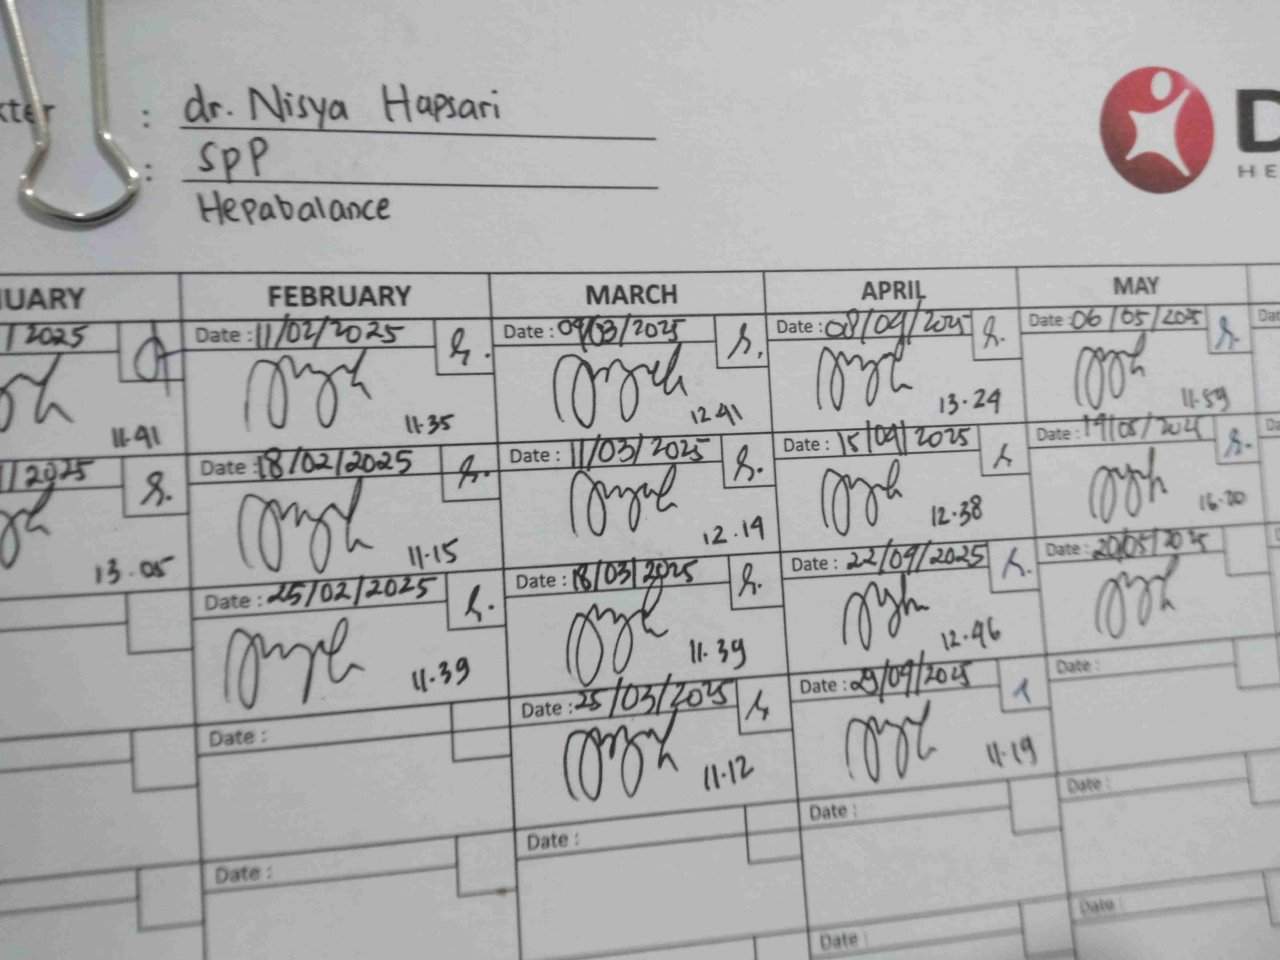 kter : dr. Nisya Hapsari
: SpP
Hepabalance
D
HE
UARY FEBRUARY MARCH APRIL MAY
/2025 Date : 11/02/2025 Date : 04/03/2025 Date : 08/04/2025 Date : 06/05/2025 Dat
11.41 11.35 12.41 13.24 11.59
1/2025 Date : 18/02/2025 Date : 11/03/2025 Date : 15/04/2025 Date : Da
13.05 11.15 12.14 12.38 16.20
Date : 25/02/2025 Date : 18/03/2025 Date : 22/04/2025 Date : 20/05/2025
11.39 11.39 12.46
Date : Date : 25/03/2025 Date : 29/04/2025 Date :
11.12
Date : Date : Date : Date :
Date : Date :